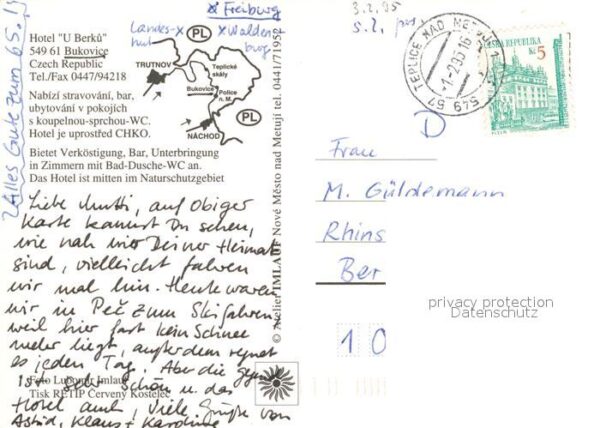 x Freiburg
Landes-x
hut
x Walden
burg
3.2.95
Alles Gute zum 65.!
Hotel "U Berků"
549 61 Bukovice
Czech Republic
Tel./Fax 0447/94218
Nabízí stravování, bar,
ubytování v pokojích
s koupelnou-sprchou-WC.
Hotel je uprostřed CHKO.
Bietet Verköstigung, Bar, Unterbringung
in Zimmern mit Bad-Dusche-WC an.
Das Hotel ist mitten im Naturschutzgebiet
PL
TRUTNOV
Teplické
skály
Bukovice
Police
n. M.
PL
NÁCHOD
Liebe Mutti, auf obiger
Karte kannst Du sehen,
wie nah wir Deiner Heimat
sind, vielleicht fahren
wir mal hin. Heute waren
wir in Peč zum Skifahren,
weil hier fast kein Schnee
mehr liegt, außerdem regnet
es jeden Tag. Aber die Gegend
ist sehr schön u. das
Hotel auch, Viele Grüße von
Astrid, Klaus +
Foto Lubomír Imlauf
Tisk RETIP Červený Kostelec
© Atelier IMLAUF Nové Město nad Metují tel. 0441/71952
549 57 TEPLICE NAD METUJÍ 1
ČESKÁ REPUBLIKA
Kč 5
PLZEŇ
D
Frau
M. Güldemann
Rhins
Ber
10
privacy protection
Datenschutz